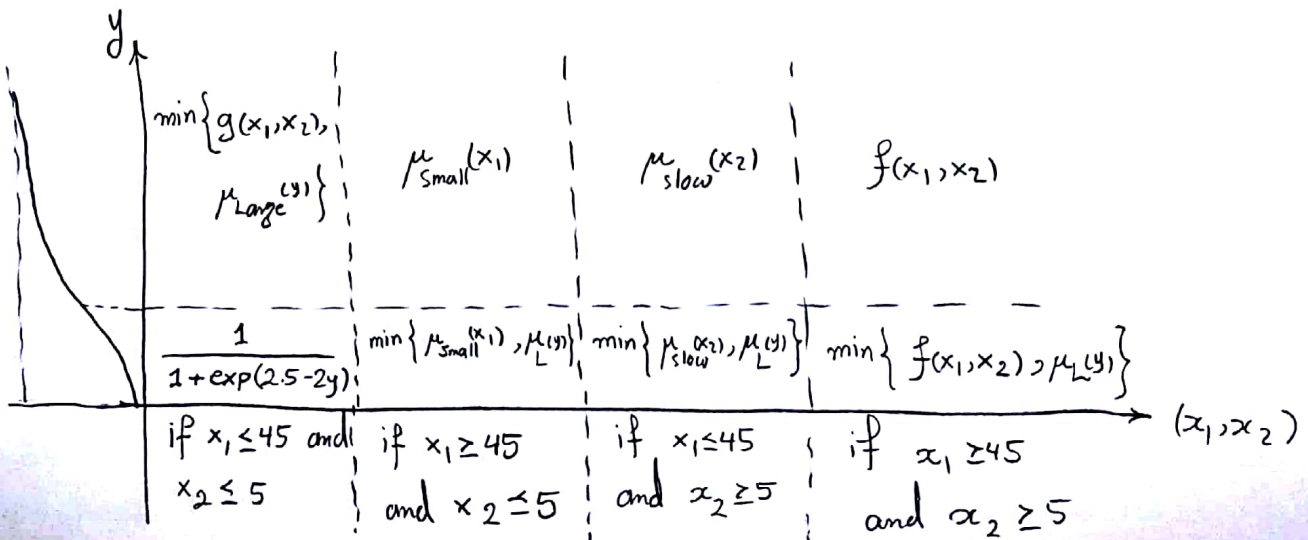 y
min{g(x₁,x₂),
μ_Large(y)}
μ_Small(x₁)
μ_slow(x₂)
f(x₁,x₂)
1
1+exp(2.5-2y)
min{μ_Small(x₁),μ_L(y)}
min{μ_slow(x₂),μ_L(y)}
min{f(x₁,x₂),μ_L(y)}
(x₁,x₂)
if x₁≤45 and
x₂≤5
if x₁≥45
and x₂≤5
if x₁≤45
and x₂≥5
if x₁≥45
and x₂≥5